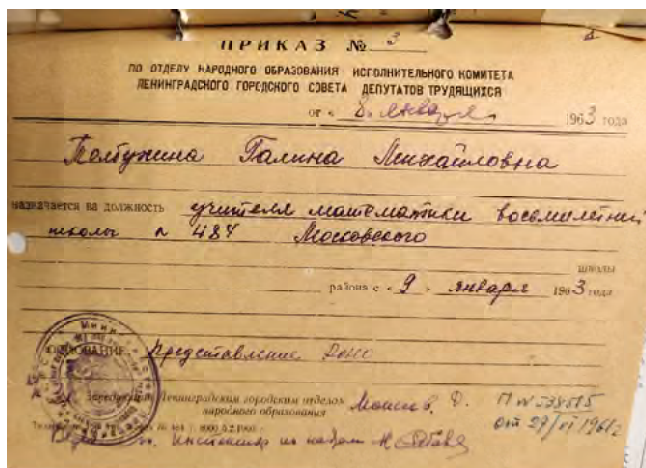 ПРИКАЗ № 3
ПО ОТДЕЛУ НАРОДНОГО ОБРАЗОВАНИЯ ИСПОЛНИТЕЛЬНОГО КОМИТЕТА
ЛЕНИНГРАДСКОГО ГОРОДСКОГО СОВЕТА ДЕПУТАТОВ ТРУДЯЩИХСЯ
от « 8 » января 1963 года
Толбухина Галина Михайловна
назначается на должность учителя математики восьмилетней
школы № 487 Московского
школы
района с « 9 » января 1963 года
ОСНОВАНИЕ: Представление РОНО
Ленинградским городским отделом
народного образования
инспектор по кадрам
от 29/VI 1961г